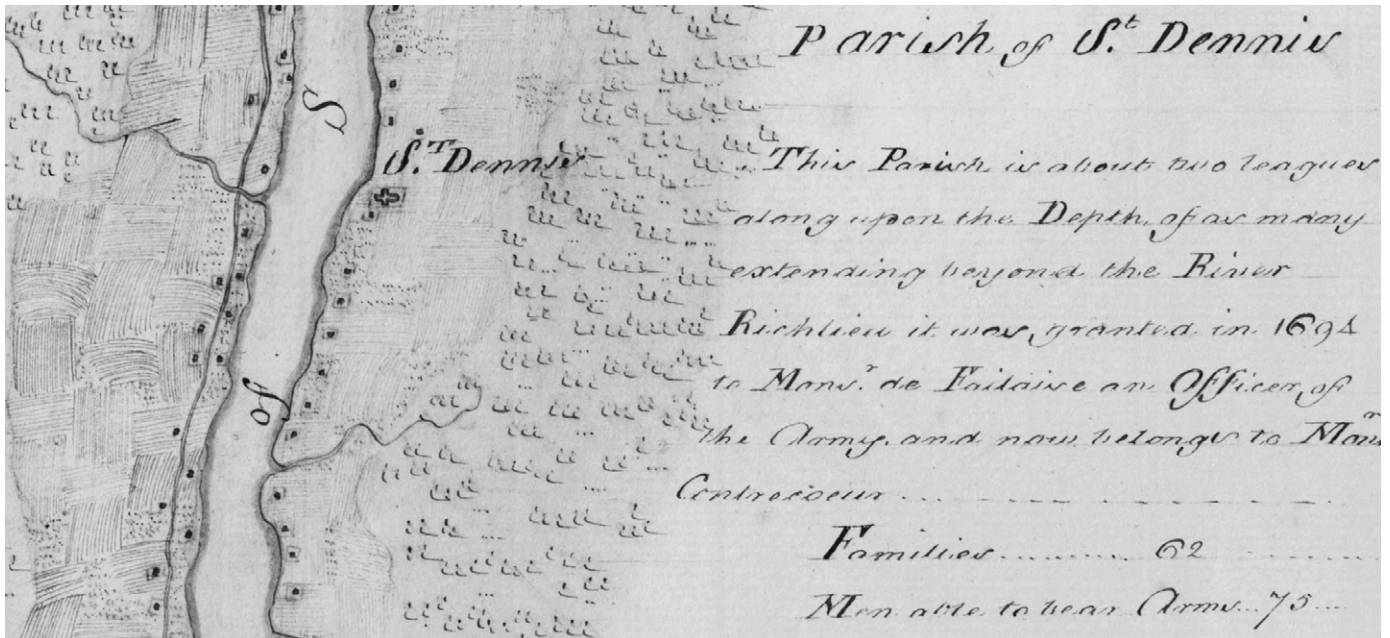 Parish of St. Dennis
St. Dennis
This Parish is about two leagues
along upon the Depth of as many
extending beyond the River
Richlieu it was granted in 1694
to Monsr. de Failaise an Officer of
the Army and now belongs to Monsr
Contrecoeur
Families ......... 62
Men able to bear Arms... 75 ...
S
of